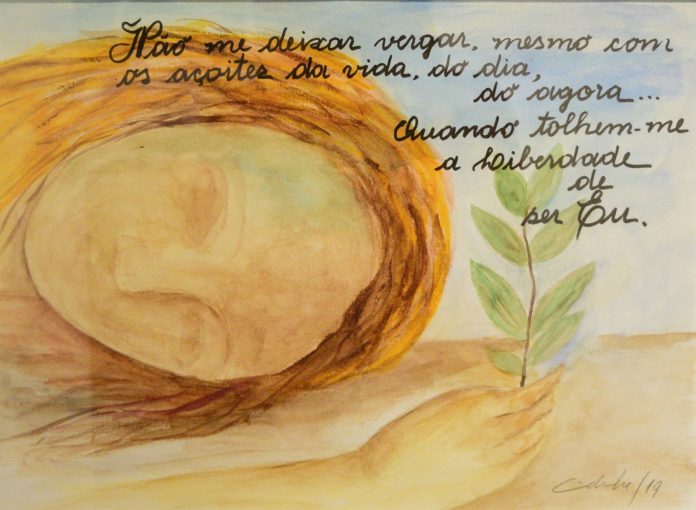 Não me deixar vergar, mesmo com
os açoites da vida, do dia,
do agora...
Quando tolhem-me
a Liberdade
de
ser Eu.
/19